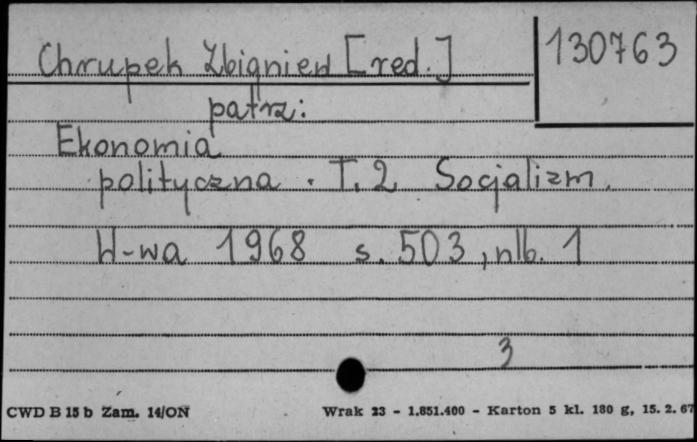 Chrupek Zbigniew [red.]
130763
patrz:
Ekonomia
polityczna. T. 2 Socjalizm.
W-wa 1968 s. 503, nlb. 1
3
CWD B 15 b Zam. 14/ON
Wrak 23 - 1.851.400 - Karton 5 kl. 180 g, 15. 2. 67